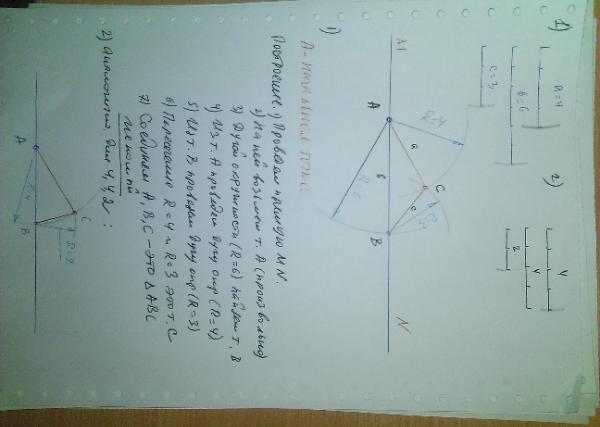 1)
a=4
b=6
c=3
2)
4
4
2
1)
M
A
R=4
a
C
b
c
R=6
R=3
B
N
A - начальная точка
Построение. 1) Проведем прямую MN.
2) На ней возьмем т. A (произвольно)
3) Дугой окружности (R=6) найдем т. B
4) Из т. A проведем дугу окр (R=4)
5) Из т. B проведем дугу окр (R=3)
6) Пересечение R=4 и R=3 это т. C
7) Соединяем A, B, C - это Δ ABC
искомый
2) Аналогично, для 4, 4, 2 :
A
R=4
B
C
R=2